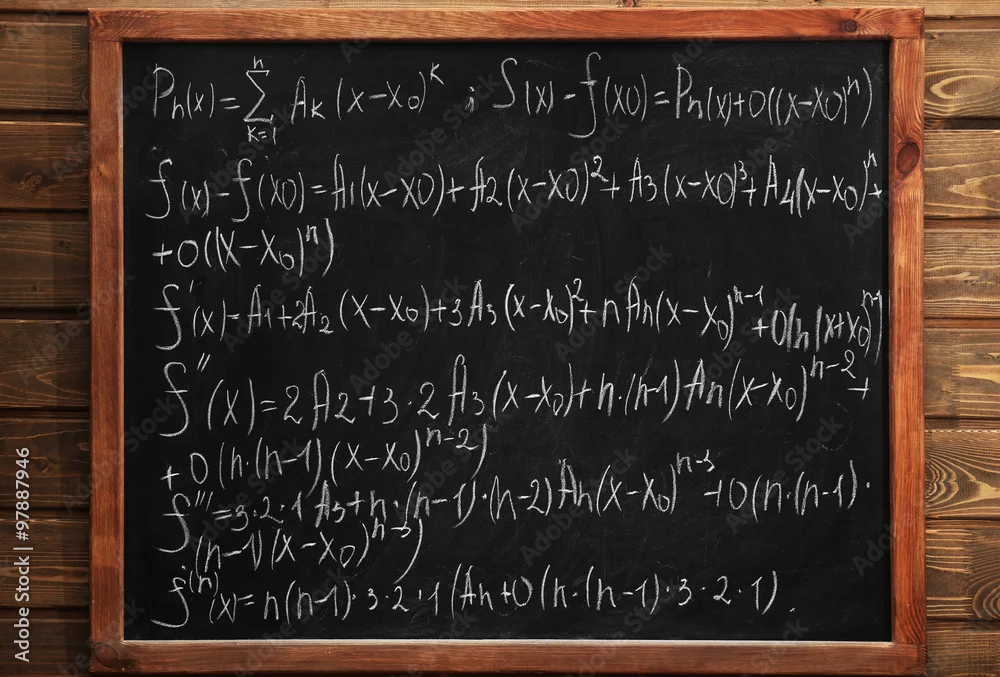 Pn(x)=∑ n k=1 Ak (x-x0)^k ; S(x)-f(x0)=Pn(x)+0((x-x0)^n)
f(x)-f(x0)=A1(x-x0)+A2(x-x0)^2+A3(x-x0)^3+A4(x-x0)^n+
+0((x-x0)^n)
f'(x)-A1+2A2(x-x0)+3A3(x-x0)^2+nAn(x-x0)^n-1+0(n(x+x0)^n-1)
f''(x)=2A2+3·2A3(x-x0)+n·(n-1)An(x-x0)^n-2+
+0(n·(n-1)(x-x0)^n-2)
f'''=3·2·1A3+n·(n-1)·(n-2)An(x-x0)^n-3+0(n·(n-1)·
(n-1)(x-x0)^n-3)
f^(n)(x)=n(n-1)·3·2·1(An+0(n·(n-1)·3·2·1).
Adobe Stock | #97887946